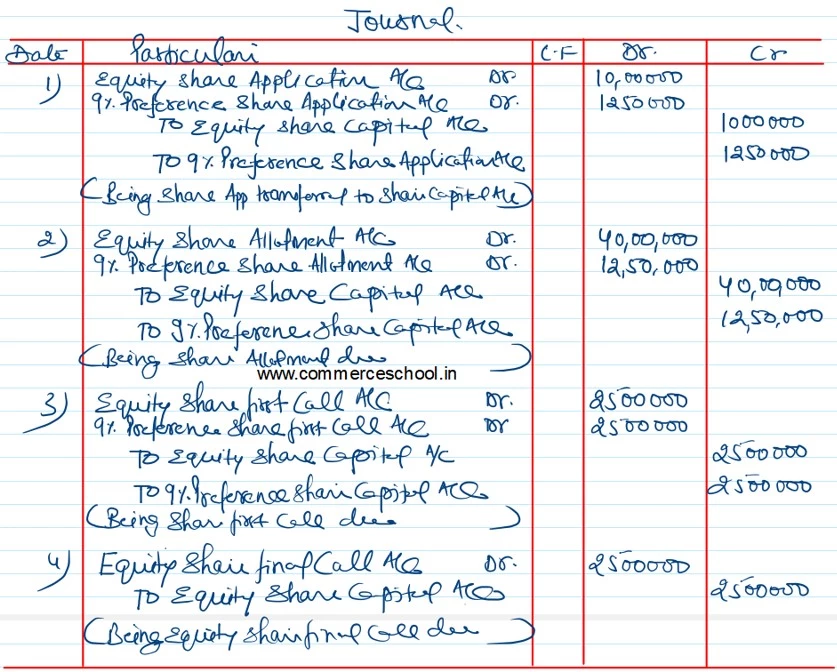 Journal.
Date Particulars L.F Dr. Cr
1) Equity Share Application A/c Dr 10,00000
9% Preference Share Application A/c Dr. 1250000
To Equity Share Capital A/c 1000000
To 9% Preference Share Application A/c 1250000
(Being Share App transferred to Share Capital A/c)
2) Equity Share Allotment A/c Dr. 40,00,000
9% Preference Share Allotment A/c Dr. 12,50,000
To Equity Share Capital A/c 40,00,000
To 9% Preference Share Capital A/c 12,50,000
(Being Share Allotment due)
www.commerceschool.in
3) Equity Share first Call A/c Dr. 2500000
9% Preference Share first Call A/c Dr 2500000
To Equity Share Capital A/c 2500000
To 9% Preference Share Capital A/c 2500000
(Being Share first Call due)
4) Equity Share final Call A/c Dr. 2500000
To Equity Share Capital A/c 2500000
(Being Equity Share final Call due)